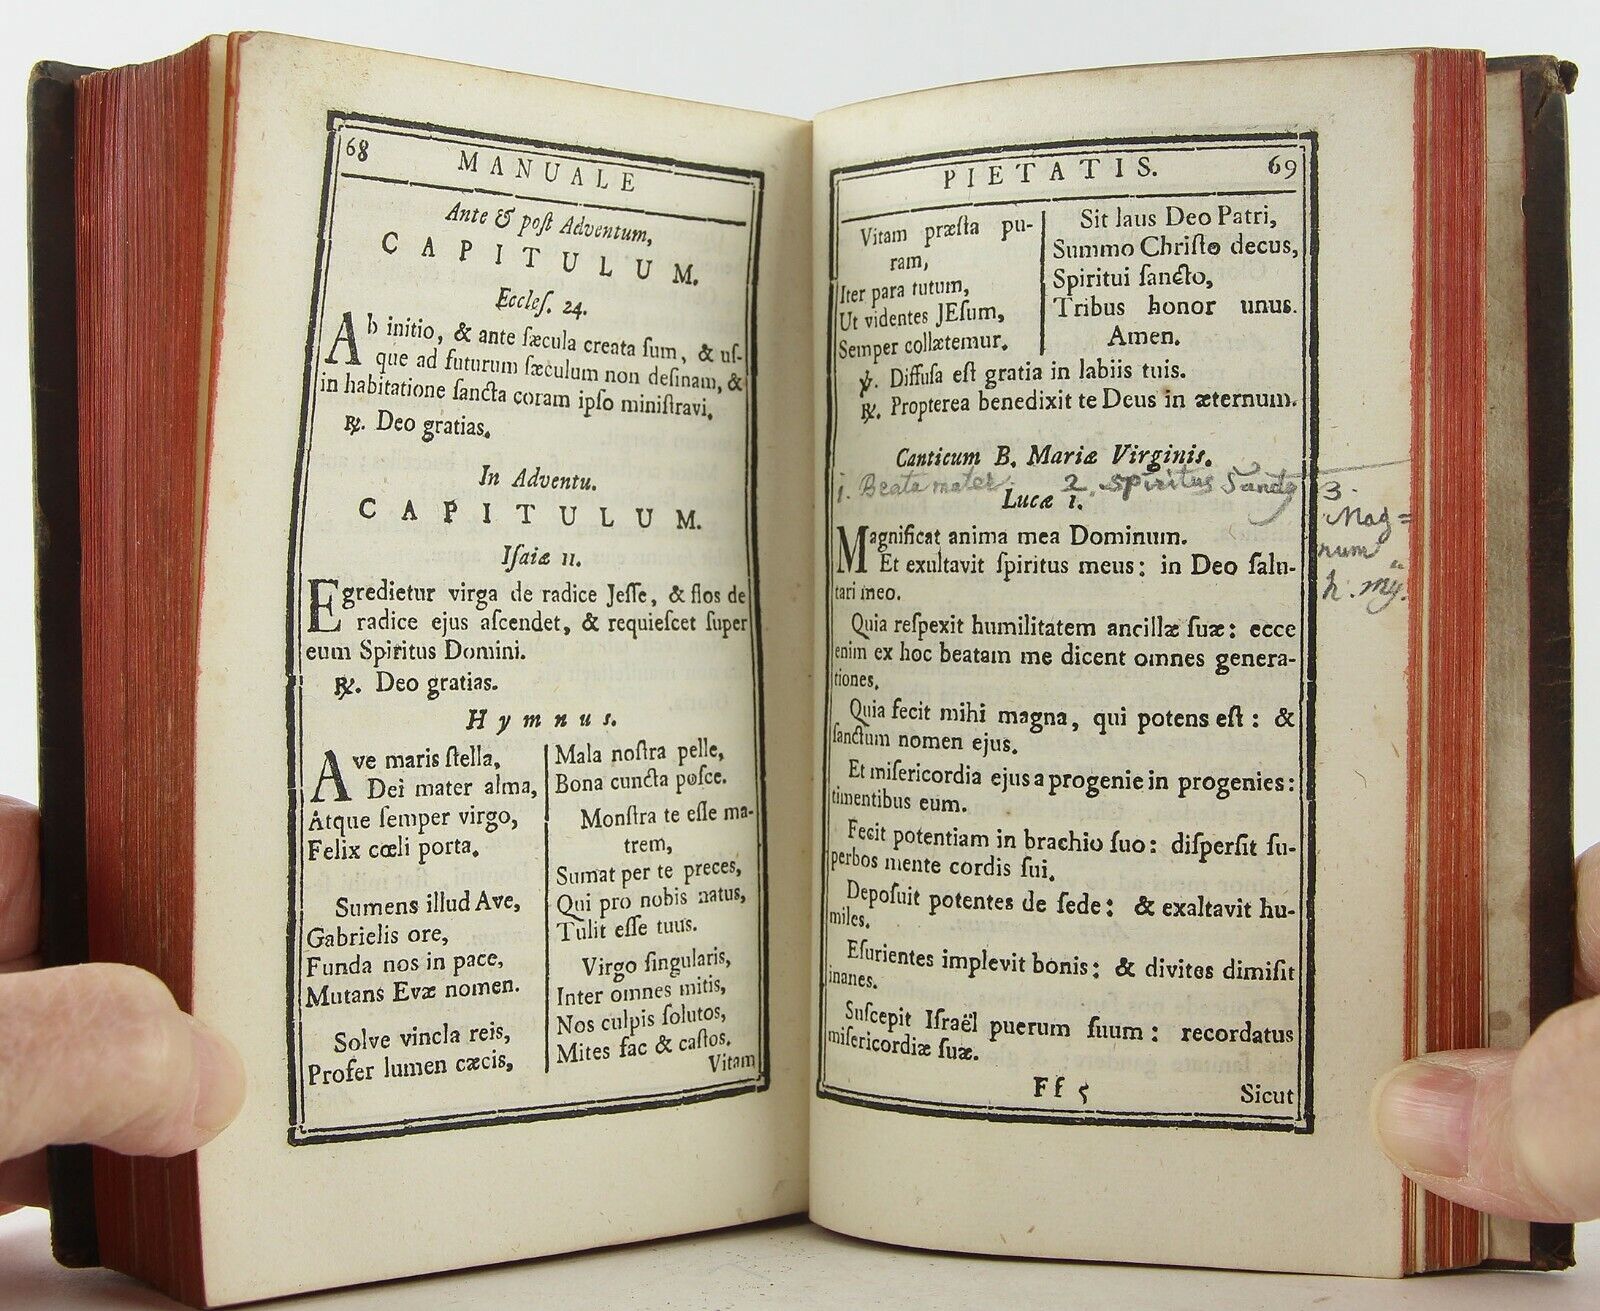 68 MANUALE
Ante & poſt Adventum,
CAPITULUM.
Eccleſ. 24.
Ab initio, & ante ſæcula creata ſum, & uſ-
que ad futurum ſæculum non deſinam, &
in habitatione ſancta coram ipſo miniſtravi.
℟. Deo gratias.
In Adventu.
CAPITULUM.
Iſaiæ 11.
Egredietur virga de radice Jeſſe, & flos de
radice ejus aſcendet, & requieſcet ſuper
eum Spiritus Domini.
℟. Deo gratias.
Hymnus.
Ave maris ſtella,
Dei mater alma,
Atque ſemper virgo,
Felix cœli porta.
Sumens illud Ave,
Gabrielis ore,
Funda nos in pace,
Mutans Evæ nomen.
Solve vincla reis,
Profer lumen cæcis,
Mala noſtra pelle,
Bona cuncta poſce.
Monſtra te eſſe ma-
trem,
Sumat per te preces,
Qui pro nobis natus,
Tulit eſſe tuus.
Virgo ſingularis,
Inter omnes mitis,
Nos culpis ſolutos,
Mites fac & caſtos.
Vitam
PIETATIS. 69
Vitam præſta pu-
ram,
Iter para tutum,
Ut videntes JEſum,
Semper collætemur.
Sit laus Deo Patri,
Summo Chriſto decus,
Spiritui ſancto,
Tribus honor unus.
Amen.
℣. Diffuſa eſt gratia in labiis tuis.
℟. Propterea benedixit te Deus in æternum.
Canticum B. Mariæ Virginis.
1. Beata mater. 2. Spiritus Sanctg
3.
Mag=
num
h. mÿ.
Lucæ 1.
Magnificat anima mea Dominum.
Et exultavit ſpiritus meus: in Deo ſalu-
tari meo.
Quia reſpexit humilitatem ancillæ ſuæ: ecce
enim ex hoc beatam me dicent omnes genera-
tiones.
Quia fecit mihi magna, qui potens eſt: &
ſanctum nomen ejus.
Et miſericordia ejus a progenie in progenies:
timentibus eum.
Fecit potentiam in brachio ſuo: diſperſit ſu-
perbos mente cordis ſui.
Depoſuit potentes de ſede: & exaltavit hu-
miles.
Eſurientes implevit bonis: & divites dimiſit
inanes.
Suſcepit Iſraël puerum ſuum: recordatus
miſericordiæ ſuæ.
Ff 5 Sicut